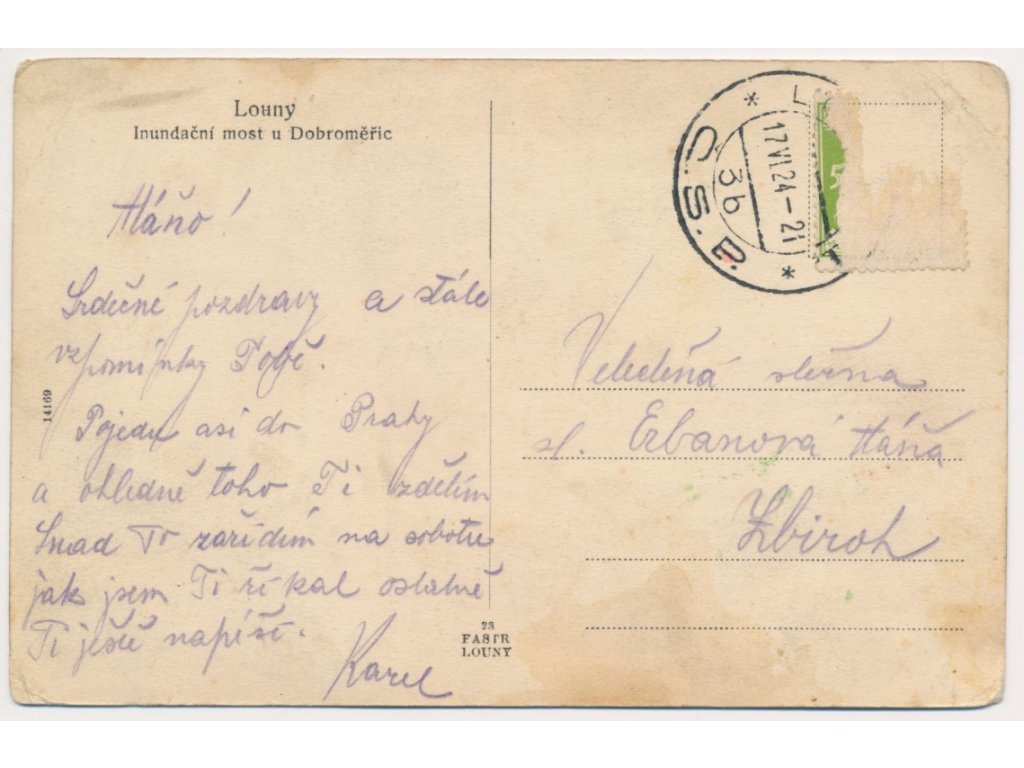 Louny
Inundační most u Dobroměřic
Háňo!
Srdečné pozdravy a stále
vzpomínky Tobě.
Pojedu asi do Prahy
a ohledně toho Ti zdělím
Snad To zařídím na sobotu
jak jsem Ti říkal ostatně
Ti ještě napíši.
Karel
14169
23
FASTR
LOUNY
* L
17 VI 24-21
3b
Č.S.P. *
5
Velectěná slečna
sl. Erbanová Háňa
Zbiroh